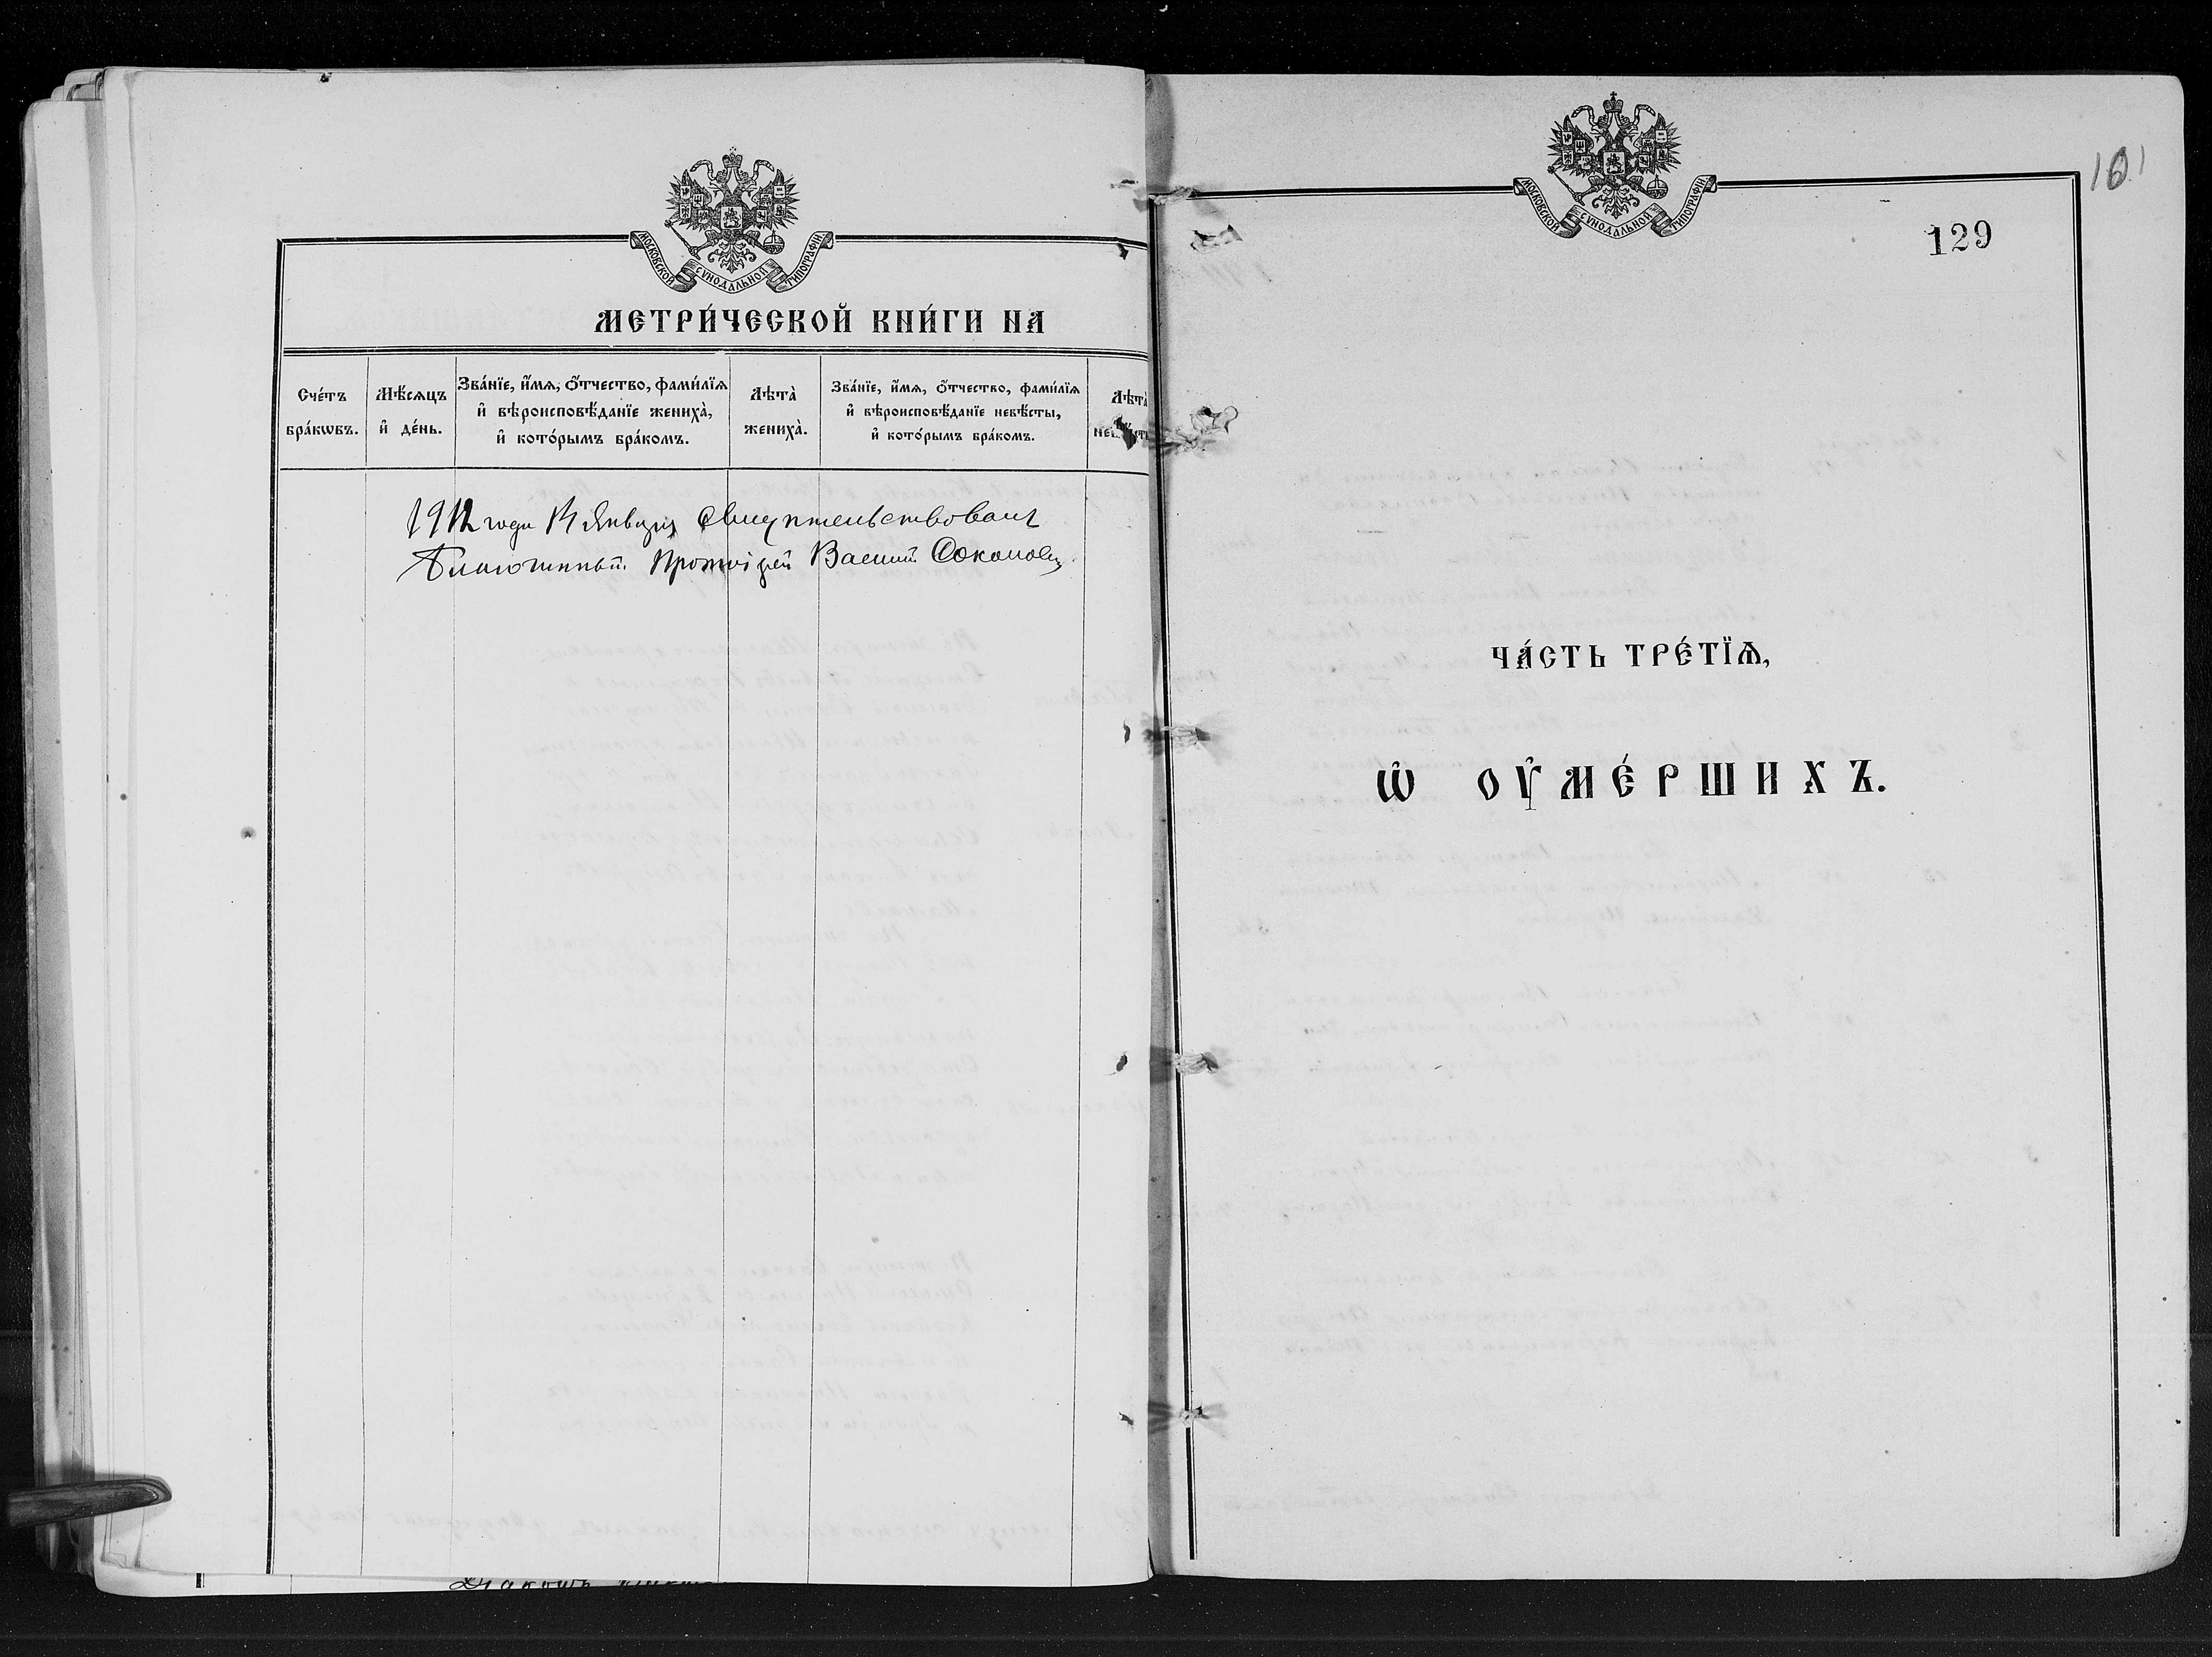 МОСКОВСКОЙ СѴНОДАЛЬНОЙ ТИПОГРАФІИ.
МЕТРИ́ЧЕСКОЙ КНИ́ГИ НА
Сче́тъ бра́кѡвъ.
Мѣ́сяцъ и҆ де́нь.
Зва́нїе, и҆́мѧ, ѻ҆́тчество, фами́лїѧ
и҆ вѣроисповѣ́данїе жениха̀,
и҆ кото́рымъ бра́комъ.
Лѣта̀ жениха̀.
Зва́нїе, и҆́мѧ, ѻ҆́тчество, фами́лїѧ
и҆ вѣроисповѣ́данїе невѣ́сты,
и҆ кото́рымъ бра́комъ.
Лѣта̀
1912 года Января Свидѣтельствовалъ
Благочинный Протоіерей Василій Соколовъ
МОСКОВСКОЙ СѴНОДАЛЬНОЙ ТИПОГРАФІИ
161
129
ЧА́СТЬ ТРЕ́ТЇѦ,
Ѡ҆ ОУ҆МЕ́РШИХЪ.